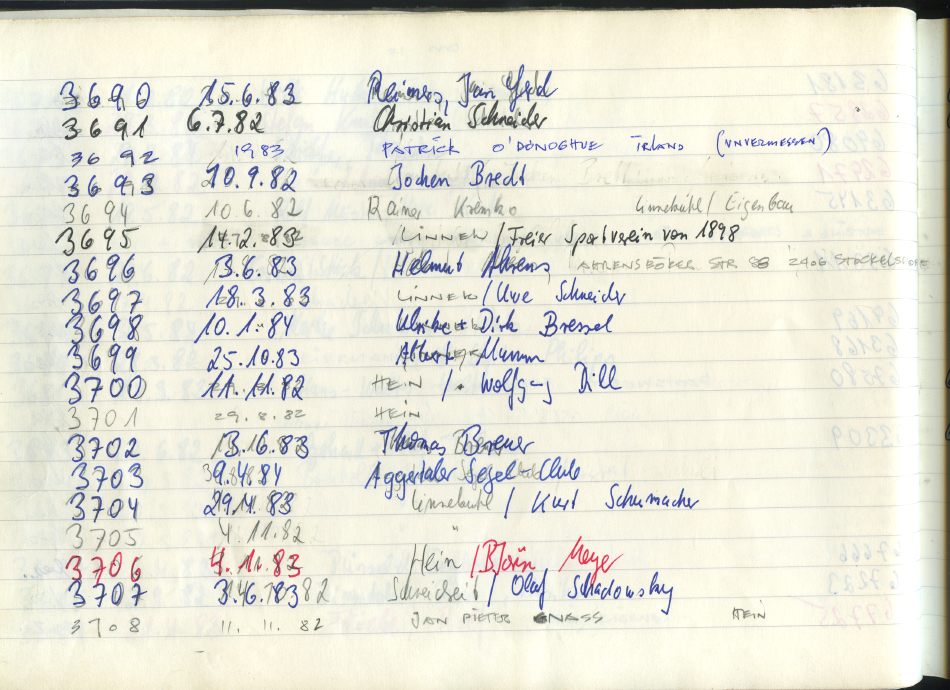 3690 15.6.83 Reimers, Jan
3691 6.7.82 Christian Schneider
3692 1983 PATRICK O'DONOGHUE IRLAND (UNVERMESSEN)
3693 20.9.82 Jochen Bredt
3694 10.6.82 Rainer Kremko Linnebühl / Eigenbau
3695 LINNEW / Freier Sportverein von 1898
3696 13.6.83 Helmut Ahrens AHRENSBÖKER STR 2406 STOCKELSDORF
3697 18.3.83 LINNEW / Uwe Schneider
3698 10.1.84 Ulrike + Dirk Bressel
3699 25.10.83 Mumm
3700 11.11.82 HEIN / Wolfgang Dill
3701 29.8.82 HEIN
3702 83 Thomas Breuer
3703 84 Aggertaler Segel-Club
3704 83 Linnebühl / Kurt Schumacher
3705 4.11.82 "
3706 4.11.83 Hein / Björn Meyer
3707 Schreiber / Olaf Schadowsky
3708 11.11.82 JAN PIETER KNASS HEIN